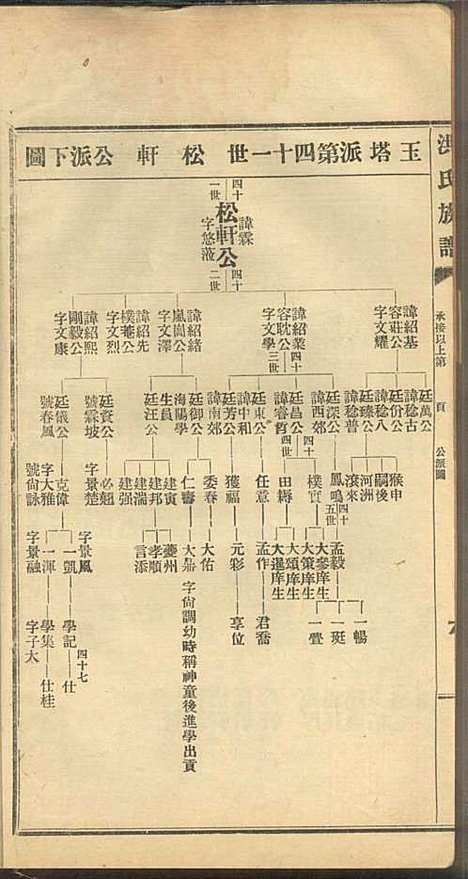 氏族譜
承接以上第 頁 公派圖
玉塔派第四十一世松軒公派下圖
四十一世
諱霖
松軒公
字悠菠
四十二世
諱紹基
容莊公
字文耀
諱紹業
容耽公
字文學
諱紹緒
嵐崗公
字文澤
諱紹先
樸菴公
字文烈
諱紹熙
剛毅公
字文康
四十三世
廷萬公
諱稔古
廷份公
諱稔八
廷臻公
諱稔普
廷深公
諱西郊
廷昌公
諱睿霄
廷東公
諱中和
廷芳公
諱南郊
廷御公
海陽學
生員
廷汪公
廷資公
號霖坡
廷儀公
號春風
四十四世
猴申
嗣後
河洲
滾來
鳳鳴
樸實
田縣
任意
獲福
委春
仁壽
建寅
建邦
建湍
建强
必魁
字景楚
克偉
字大雅
號尙詠
四十五世
孟毅
大參庠生
大策庠生
大頌庠生
大暹庠生
孟作
元彩
大佑
大鼎 字尙調幼時稱神童後進學出貢
夔州
孝順
言添
字景風
一凱
一渾
字景融
一暢
一珽
一疊
君喬
享位
學記
學集
字子大
四十七
仕
仕桂